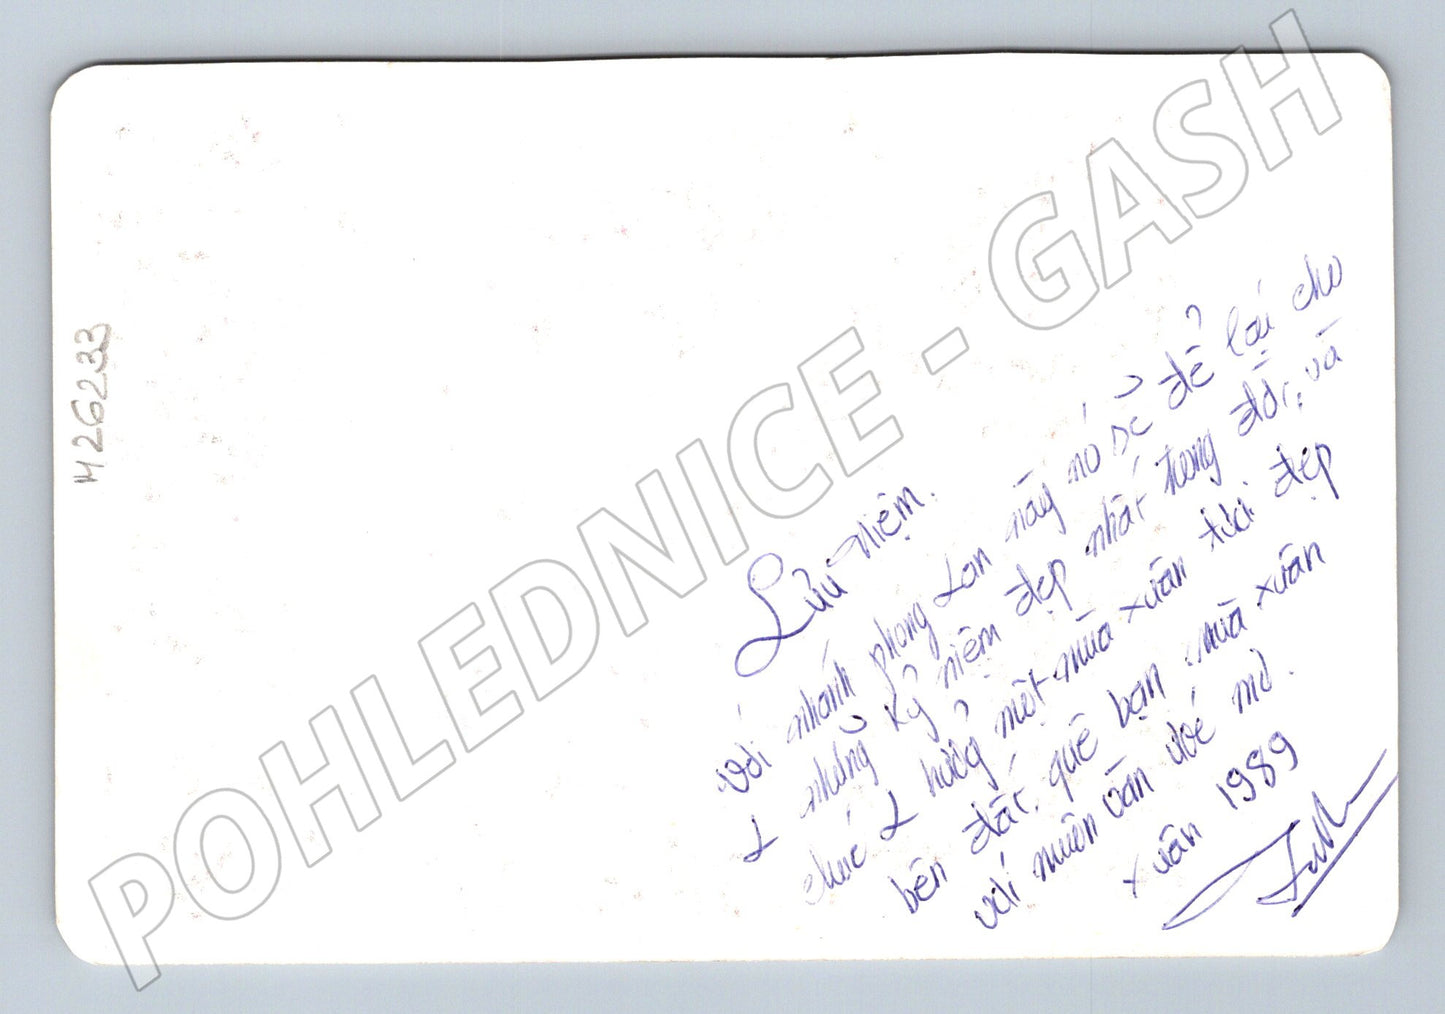 Lưu niệm.
với nhánh phong Lan này nó sẽ để lại cho
L những kỷ niệm đẹp nhất trong đời, và
chúc L hưởng một mùa xuân tươi đẹp
bên đất quê bạn mùa xuân
với muôn vàn ước mơ.
xuân 1989
M26233
POHLEDNICE - GASH